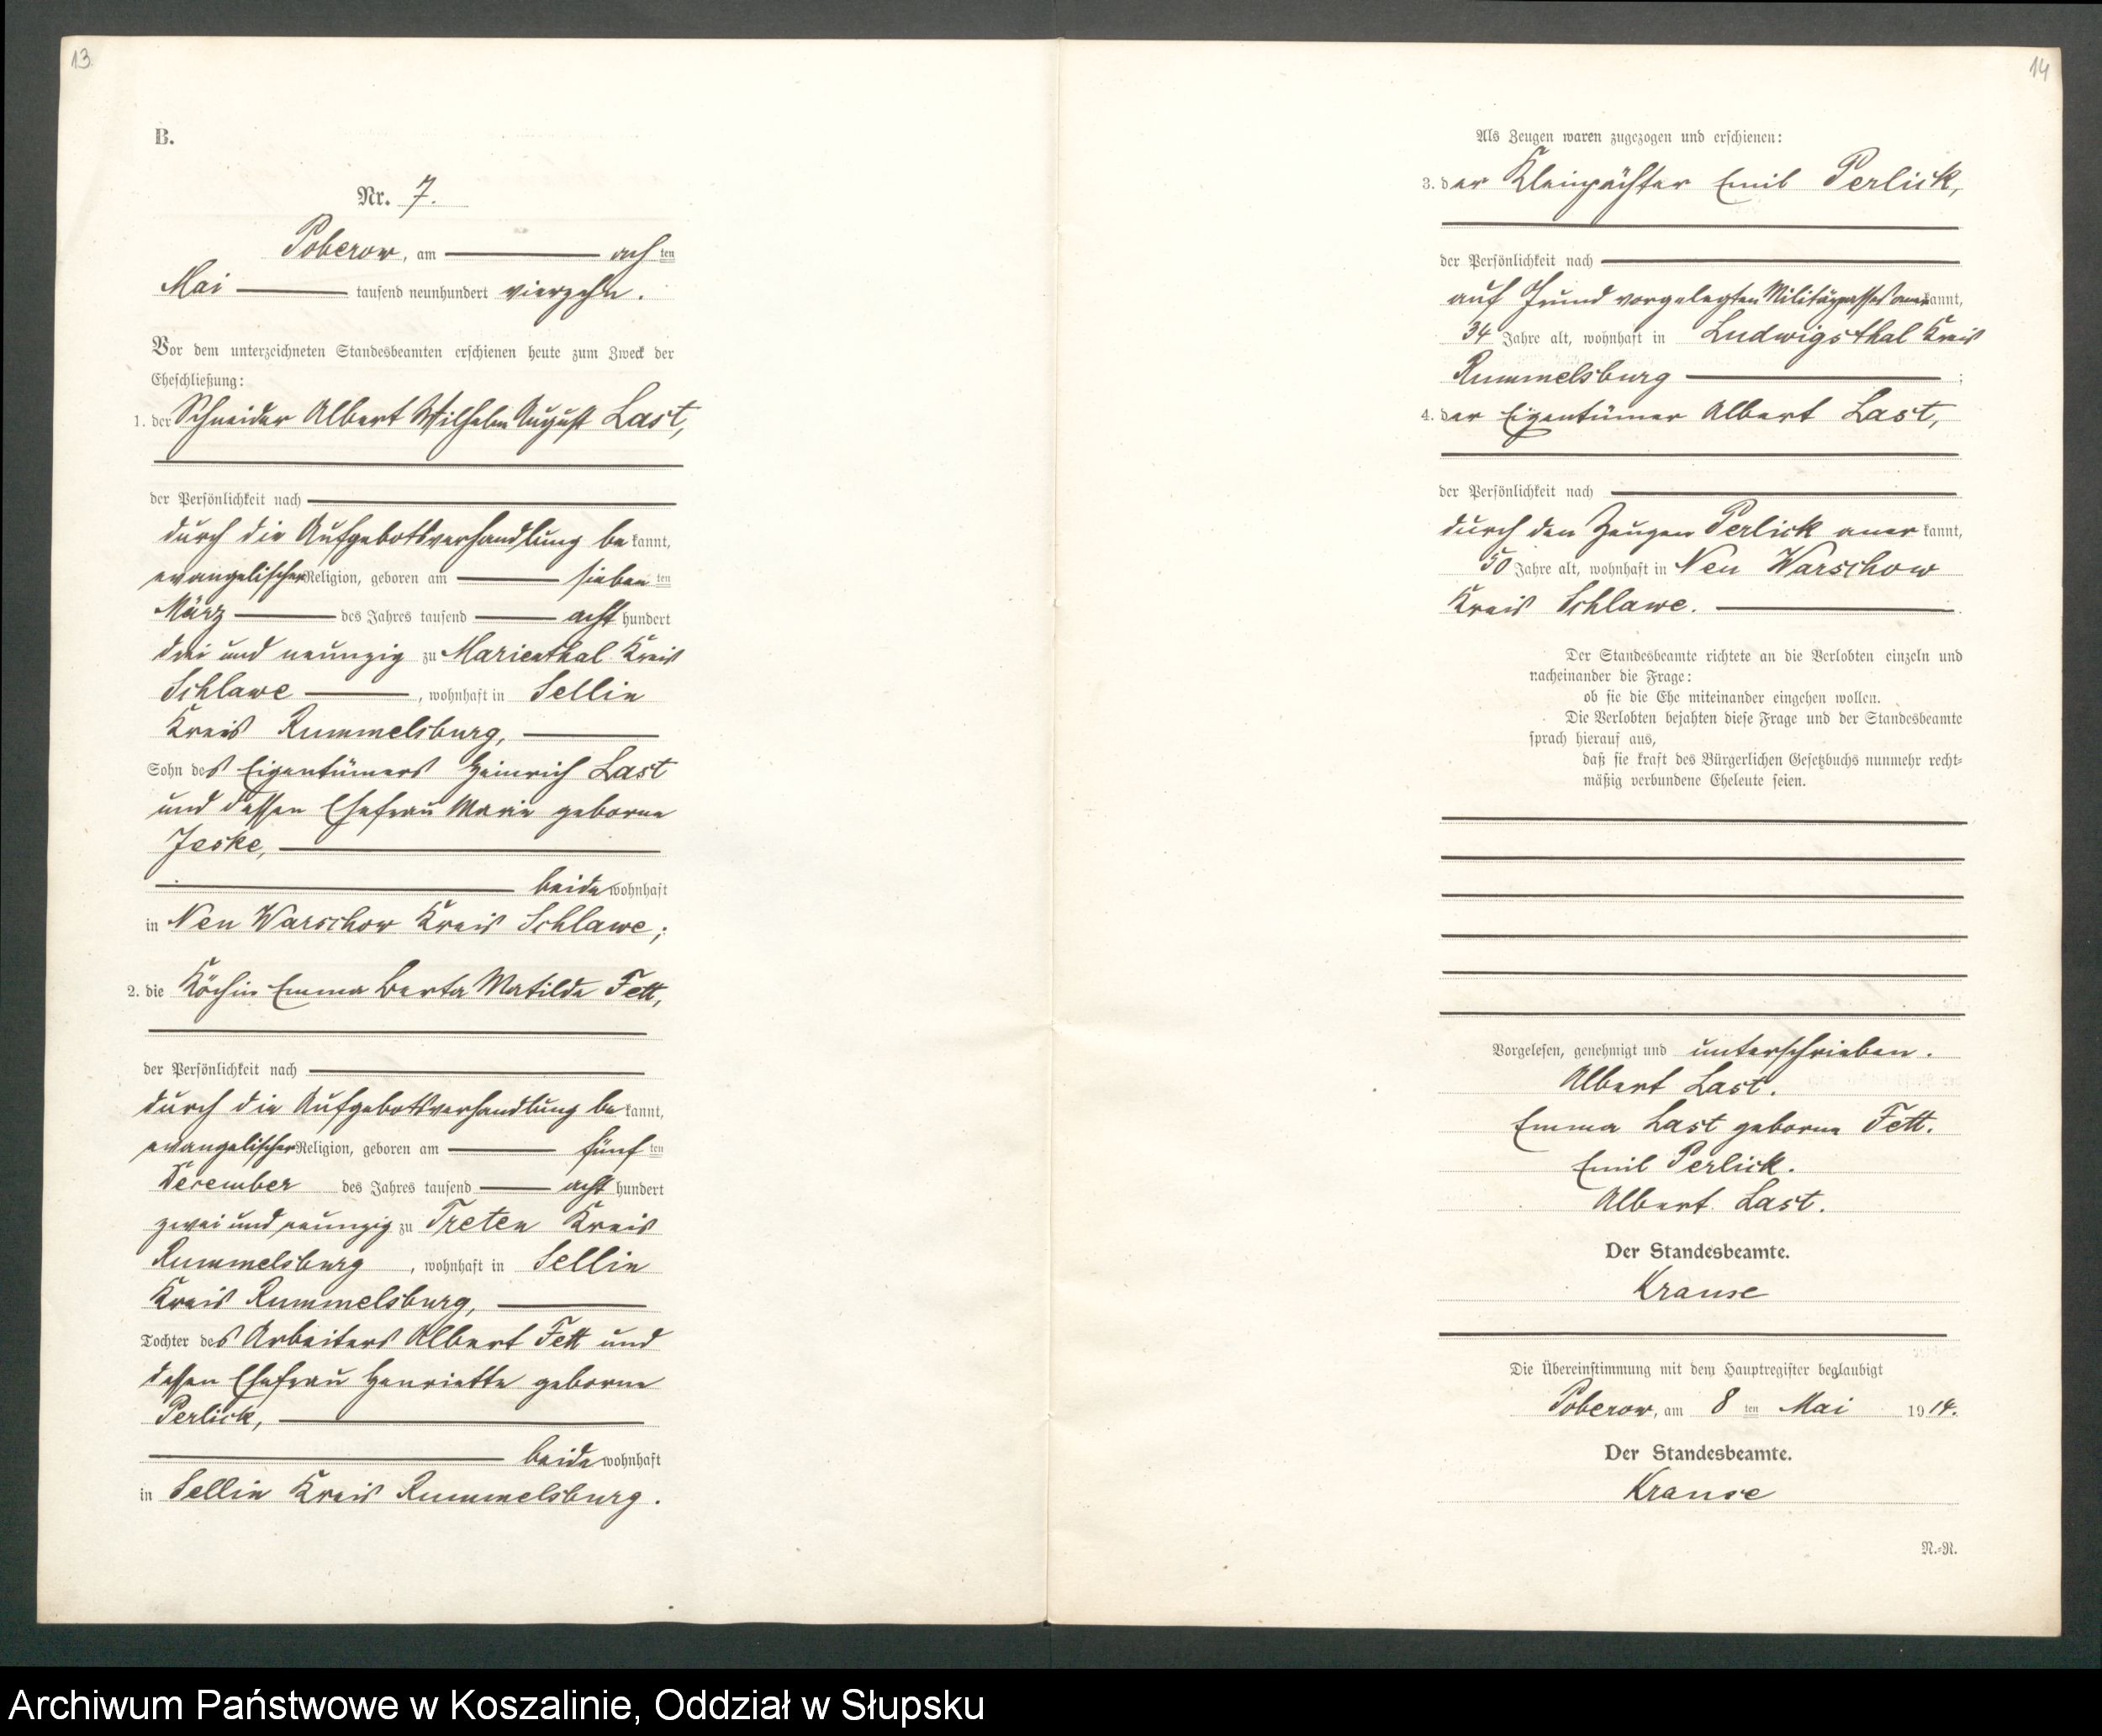 13
B.
Nr. 7.
Poberow, am ach ten
Mai tausend neunhundert vierzehn.
Vor dem unterzeichneten Standesbeamten erschienen heute zum Zweck der
Eheschließung:
1. der Schneider Albert Wilhelm August Last,
der Persönlichkeit nach
durch die Aufgebotsverhandlung be kannt,
evangelischer Religion, geboren am sieben ten
März des Jahres tausend acht hundert
drei und neunzig zu Marienthal Kreis
Schlawe, wohnhaft in Sellin
Kreis Rummelsburg,
Sohn des Eigentümers Heinrich Last
und dessen Ehefrau Marie geborne
Jeske,
beide wohnhaft
in Neu Warschow Kreis Schlawe;
2. die Köchin Emma Berta Matilde Fett,
der Persönlichkeit nach
durch die Aufgebotsverhandlung be kannt,
evangelischer Religion, geboren am fünf ten
Dezember des Jahres tausend acht hundert
zwei und neunzig zu Treten Kreis
Rummelsburg, wohnhaft in Sellin
Kreis Rummelsburg,
Tochter des Arbeiters Albert Fett und
dessen Ehefrau Henriette geborne
Perlick,
beide wohnhaft
in Sellin Kreis Rummelsburg.
14
Als Zeugen waren zugezogen und erschienen:
3. der Kleinpächter Emil Perlick,
der Persönlichkeit nach
auf Grund vorgelegten Militärpasses aner kannt,
34 Jahre alt, wohnhaft in Ludwigsthal Kreis
Rummelsburg ;
4. der Eigentümer Albert Last,
der Persönlichkeit nach
durch den Zeugen Perlick aner kannt,
50 Jahre alt, wohnhaft in Neu Warschow
Kreis Schlawe.
Der Standesbeamte richtete an die Verlobten einzeln und
nacheinander die Frage:
ob sie die Ehe miteinander eingehen wollen.
Die Verlobten bejahten diese Frage und der Standesbeamte
sprach hierauf aus,
daß sie kraft des Bürgerlichen Gesetzbuchs nunmehr recht-
mäßig verbundene Eheleute seien.
Vorgelesen, genehmigt und unterschrieben.
Albert Last.
Emma Last geborne Fett.
Emil Perlick.
Albert Last.
Der Standesbeamte.
Krause
Die Übereinstimmung mit dem Hauptregister beglaubigt
Poberow, am 8 ten Mai 19 14.
Der Standesbeamte.
Krause
N.-R.
Archiwum Państwowe w Koszalinie, Oddział w Słupsku